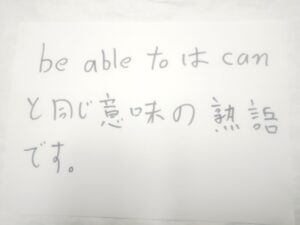 be able to は can
と同じ意味の熟語
です。